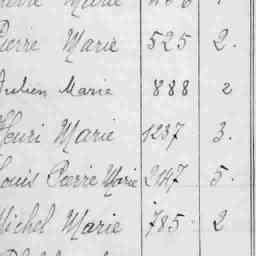 Pierre Marie 525 2.
Julien Marie 888 2
Henri Marie 1237 3.
Louis Pierre Marie 2147 5.
Michel Marie 785 2